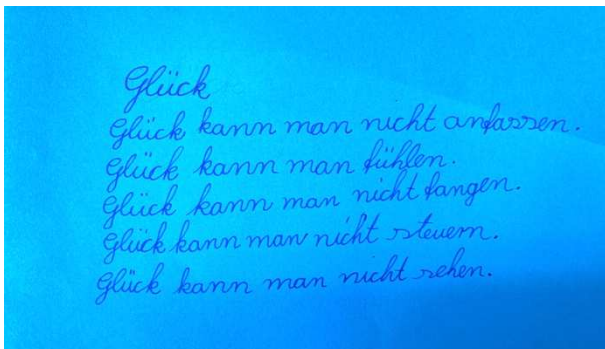 Glück
Glück kann man nicht anfassen.
Glück kann man fühlen.
Glück kann man nicht fangen.
Glück kann man nicht steuern.
Glück kann man nicht sehen.